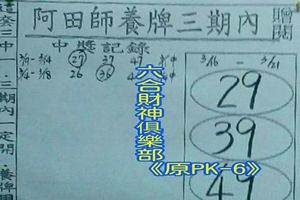 阿田師養牌三期內
贈閱
中獎記錄
3/9-3/14 27 37 47
3/14-3/18 26 36
3/16-3/21
29
39
49
六合財神俱樂部
《原PK-6》
三期內一定開